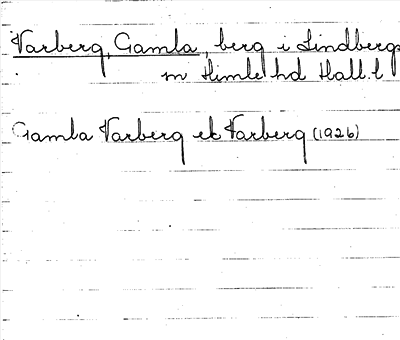 Varberg, Gamla, berg i Lindbergs
sn Himle hd Hall. l
Gamla Varberg ek Varberg (1926)